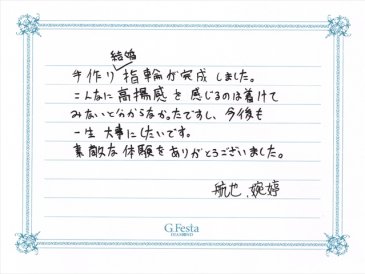 結婚
手作り指輪が完成しました。
こんなに高揚感を感じるのは着けて
みないと分からなかったですし、今後も
一生大事にしたいです。
素敵な体験をありがとうございました。
航也、婉婷
G.Festa